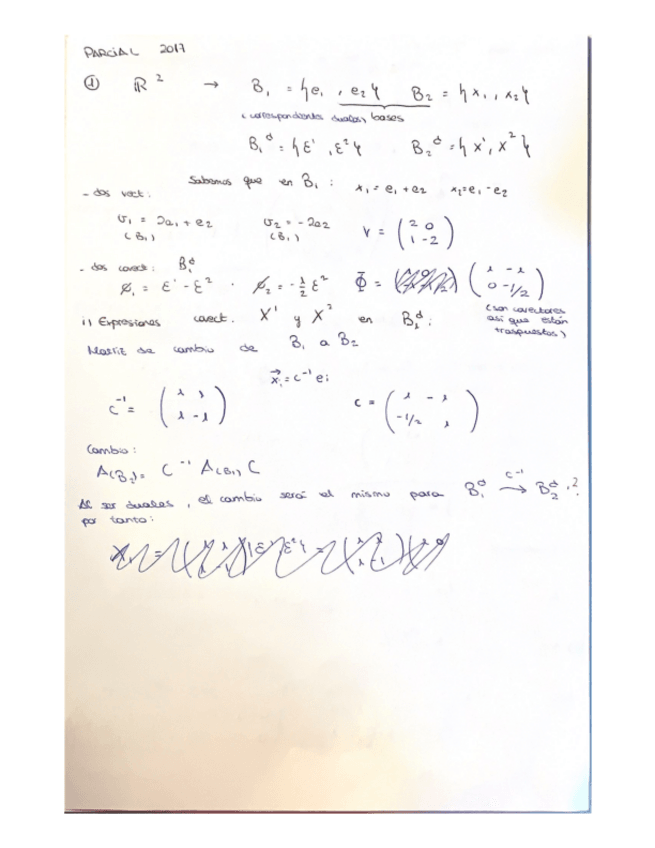 PARCIAL 2017
① ℝ² → B₁ = {e₁, e₂} B₂ = {x₁, x₂}
(correspondientes duales) bases
B₁ᵈ = {ε¹, ε²} B₂ᵈ = {x¹, x²}
Sabemos que en B₁ : x₁ = e₁ + e₂ x₂ = e₁ - e₂
- dos vect:
v₁ = 2e₁ + e₂ v₂ = -2e₂ V = (2 0
1 -2)
(B₁) (B₁)
- dos covect: B₁ᵈ
φ₁ = ε¹ - ε² . φ₂ = -1/2 ε² Φ = (1 -1
0 -1/2)
(son covectores
así que están
traspuestos)
i) Expresiones covect. X¹ y X² en B₁ᵈ:
Matriz de cambio de B₁ a B₂
x⃗ᵢ = c⁻¹ eᵢ
c⁻¹ = (1 1
1 -1) c = (1 -1
-1/2 1)
Cambio:
A(B₂) = C⁻¹ A(B₁) C
Al ser duales, el cambio será el mismo para B₁ᵈ c⁻¹→ B₂ᵈ.?
por tanto: